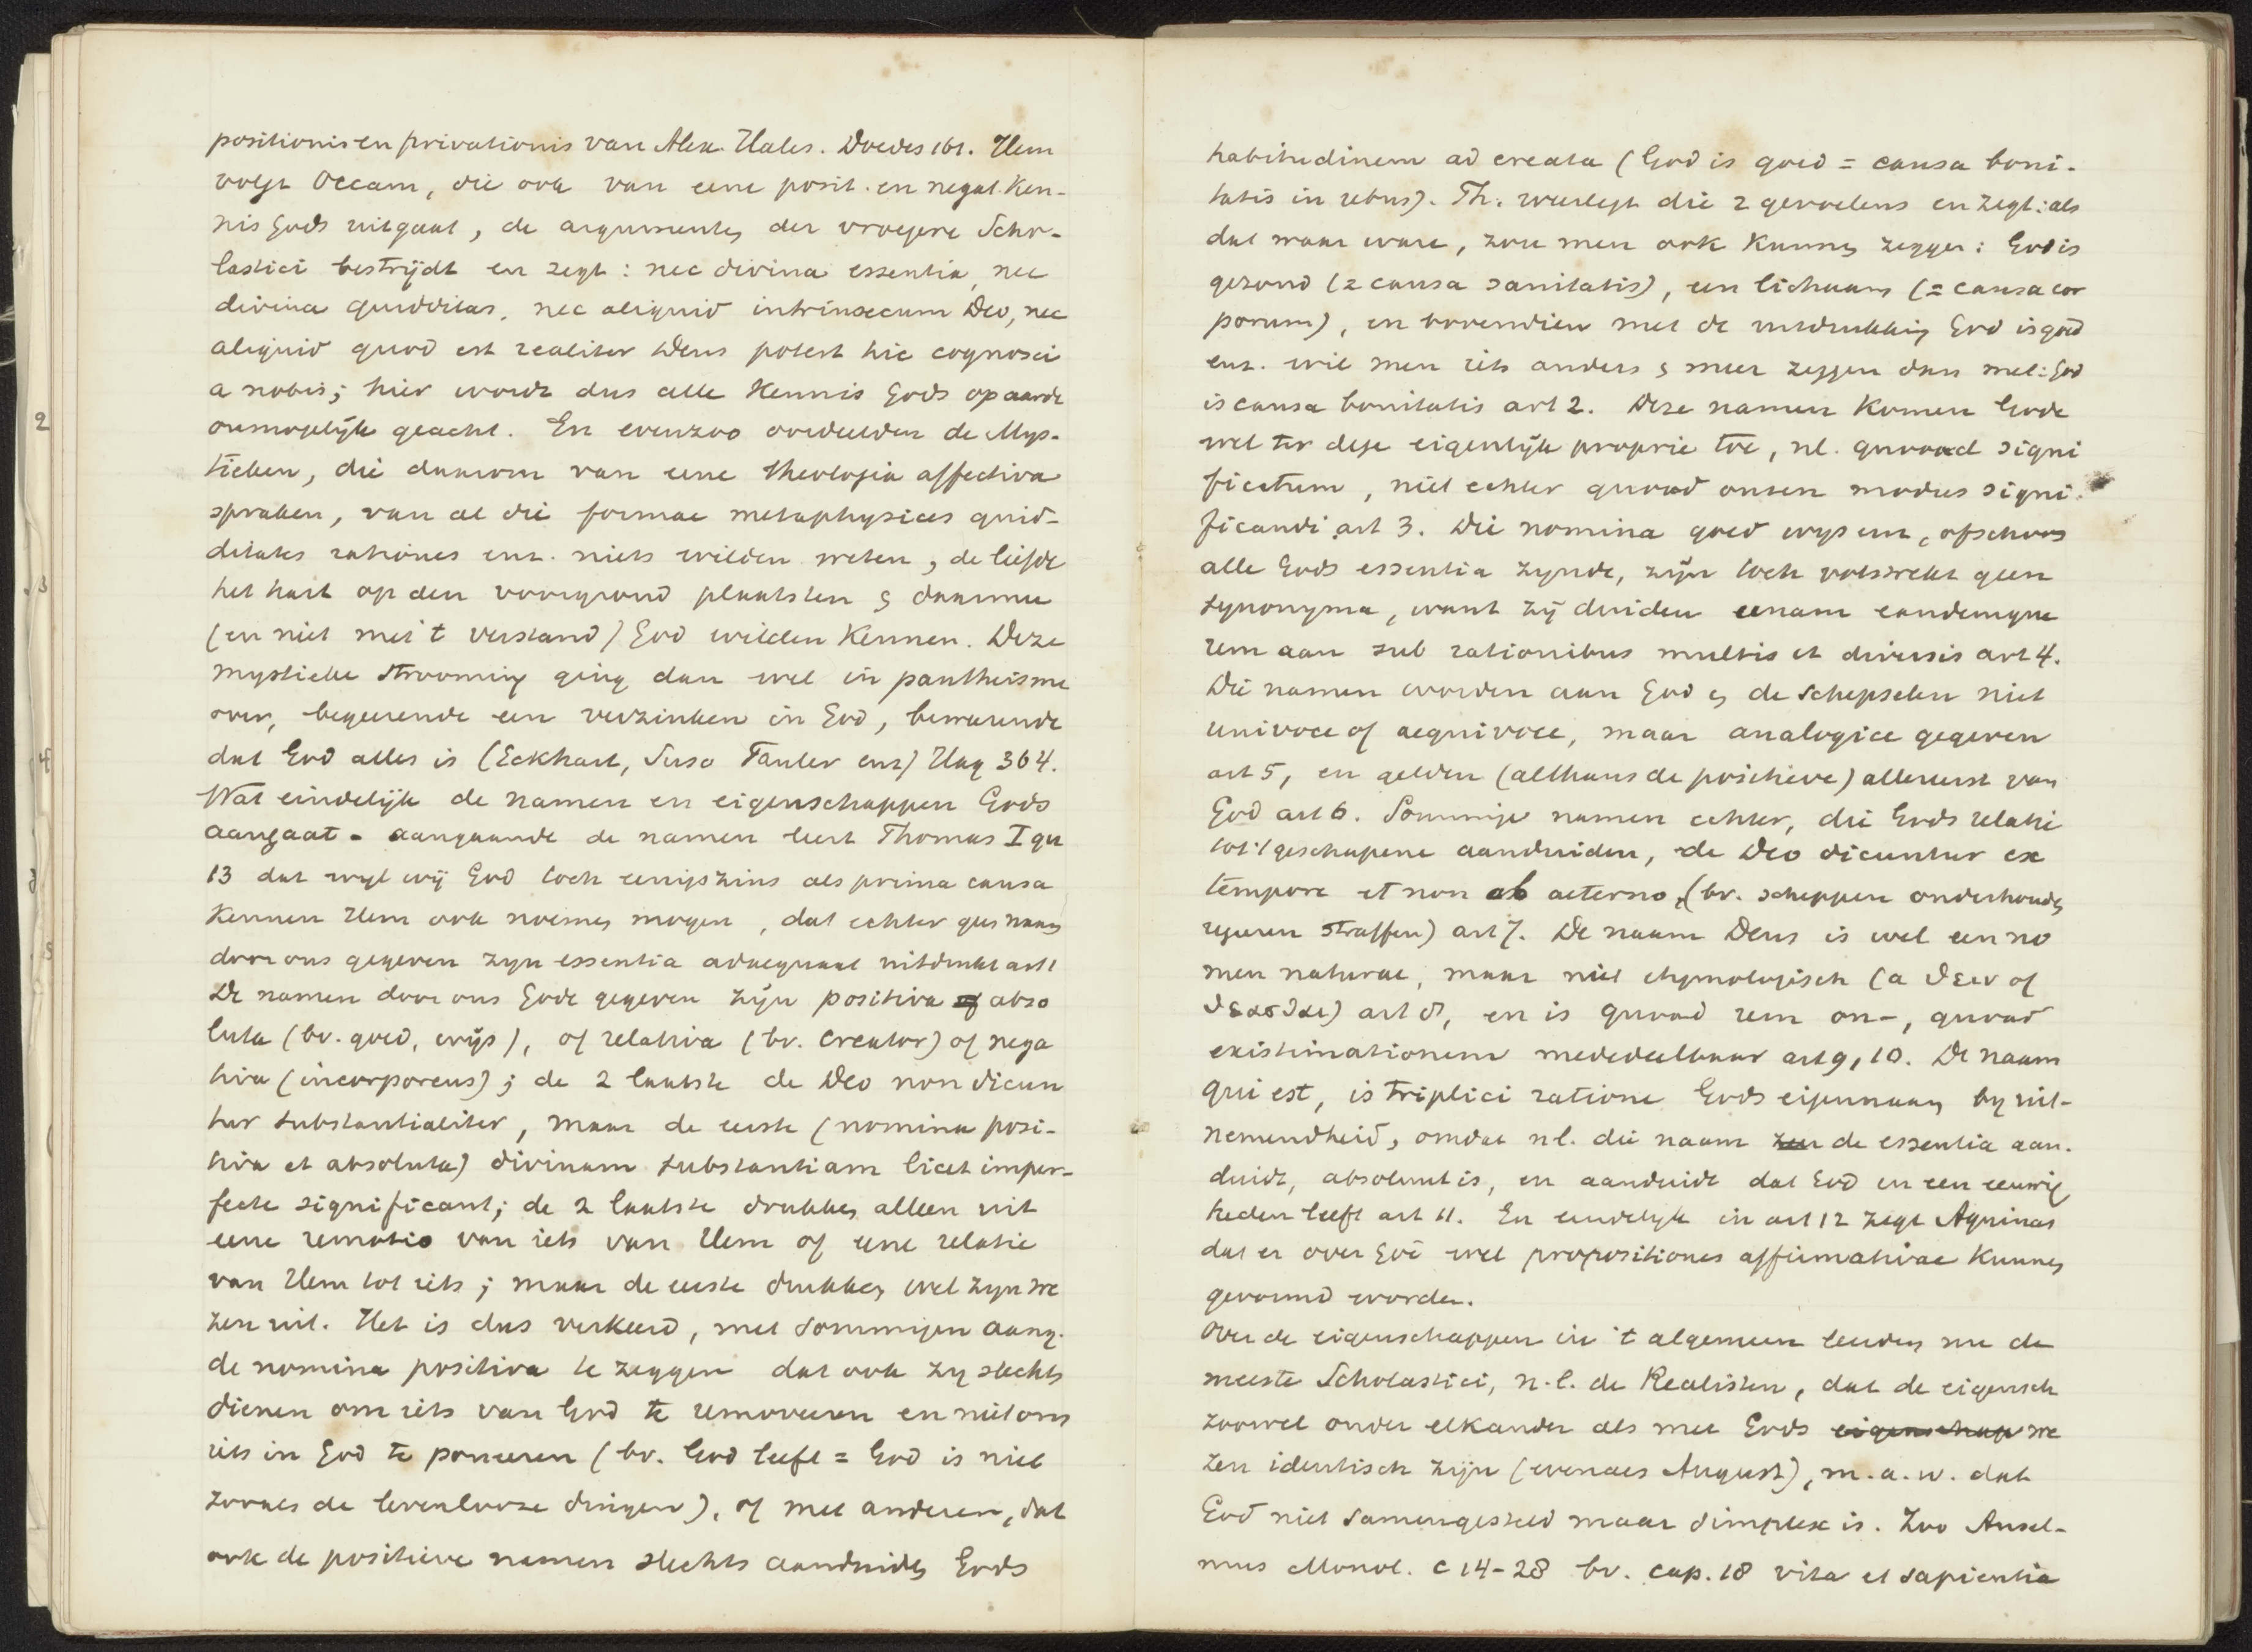 positionis en privationis van Alex. Hales. Doedes 161. Hem
volgt Occam, die ook van eene posit. en negat. Ken-
nis Gods uitgaat, de argumenten der vroegere Scho-
lastici bestrijdt en zegt: nec divina essentia, nec
divina quidditas, nec aliquid intrinsecum Deo, nec
aliquid quod est realiter Deus potest hic cognosci
a nobis; hier wordt dus alle Kennis Gods op aarde
onmogelijk geacht. En evenzoo oordeelden de Mys-
tieken, die daarom van eene theologia affectiva
spraken, van al die formae metaphysices quid-
ditates rationes enz. niets wilden weten, de liefde
het hart op den voorgrond plaatsten en daarmee
(en niet met 't verstand) God wilden Kennen. Deze
mystieke strooming ging dan wel in pantheisme
over, begeerende een verzinken in God, bewerende
dat God alles is (Eckhart, Suso Tauler enz) Hag 364.
Wat eindelijk de namen en eigenschappen Gods
aangaat - aangaande de namen leert Thomas I qu
13 dat wyl wij God toch eenigszins als prima causa
Kennen Hem ook noemen mogen, dat echter geen naam
door ons gegeven zyn essentia adaequaat uitdrukt art 1
De namen door ons Gode gegeven zijn positiva of abso
luta (bv. goed, wijs), of relativa (bv. Creator) of nega
tiva (incorporeus); de 2 laatste de Deo non dicun
tur substantialiter, maar de eerste (nomina posi-
tiva et absoluta) divinam substantiam licet imper-
fecte significant; de 2 laatste drukken alleen uit
eene remotio van iets van Hem of eene relatie
van Hem tot iets; maar de eerste drukken wel zyn we
zen uit. Het is dus verkeerd, met sommigen aang.
de nomina positiva te zeggen dat ook zy slechts
dienen om iets van God te removeeren en niet om
iets in God te poneeren (bv. God leeft = God is niet
zooals de levenlooze dingen), of met anderen, dat
ook de positieve namen slechts aanduiden Gods
habitudinem ad creata (God is goed = causa boni-
tatis in rebus). Th. weerlegt die 2 gevoelens en zegt: als
dat waar ware, zou men ook Kunnen zeggen: God is
gezond (= causa sanitatis), een lichaam (= causa cor
porum), en bovendien met de uitdrukking God is goed
enz. wil men iets anders en meer zeggen dan met: God
is causa bonitatis art 2. Deze namen Komen Gode
wel ter dege eigenlijk proprie toe, nl. quoad signi
ficatum, niet echter quoad onzen modus signi-
ficandi art 3. Die nomina goed wys enz, ofschoon
alle Gods essentia zynde, zijn toch volstrekt geen
synonyma, want zij duiden eenam eandemque
rem aan sub rationibus multis et diversis art 4.
Die namen worden aan God en de schepselen niet
univoce of aequivoce, maar analogice gegeven
art 5, en gelden (althans de positieve) allereerst van
God art 6. Sommige namen echter, die Gods relatie
tot 't geschapene aanduiden, de Deo dicuntur ex
tempore et non ab aeterno, (bv. scheppen onderhouden
regeeren straffen) art 7. De naam Deus is wel een no
men naturae, maar niet etymologisch (a θεειν of
θεασθαι) art 8, en is quoad rem on-, quoad
existimationem mededeelbaar art 9, 10. De naam
qui est, is triplici ratione Gods eigennaam by uit-
nemendheid, omdat nl. die naam zen de essentia aan-
duidt, absoluut is, en aanduidt dat God in een eeuwig
heden leeft art 11. En eindelyk in art 12 zegt Aquinas
dat er over God wel propositiones affirmativae Kunnen
gevormd worden.
Over de eigenschappen in 't algemeen leerden nu de
meeste Scholastici, n.l. de Realisten, dat de eigensch
zoowel onder elkander als met Gods eigenschap we
zen identisch zijn (evenals August), m.a.w. dat
God niet samengesteld maar simplex is. Zoo Ansel-
mus Monol. c 14-28 bv. cap. 18 vita et sapientia
2
3
4
5